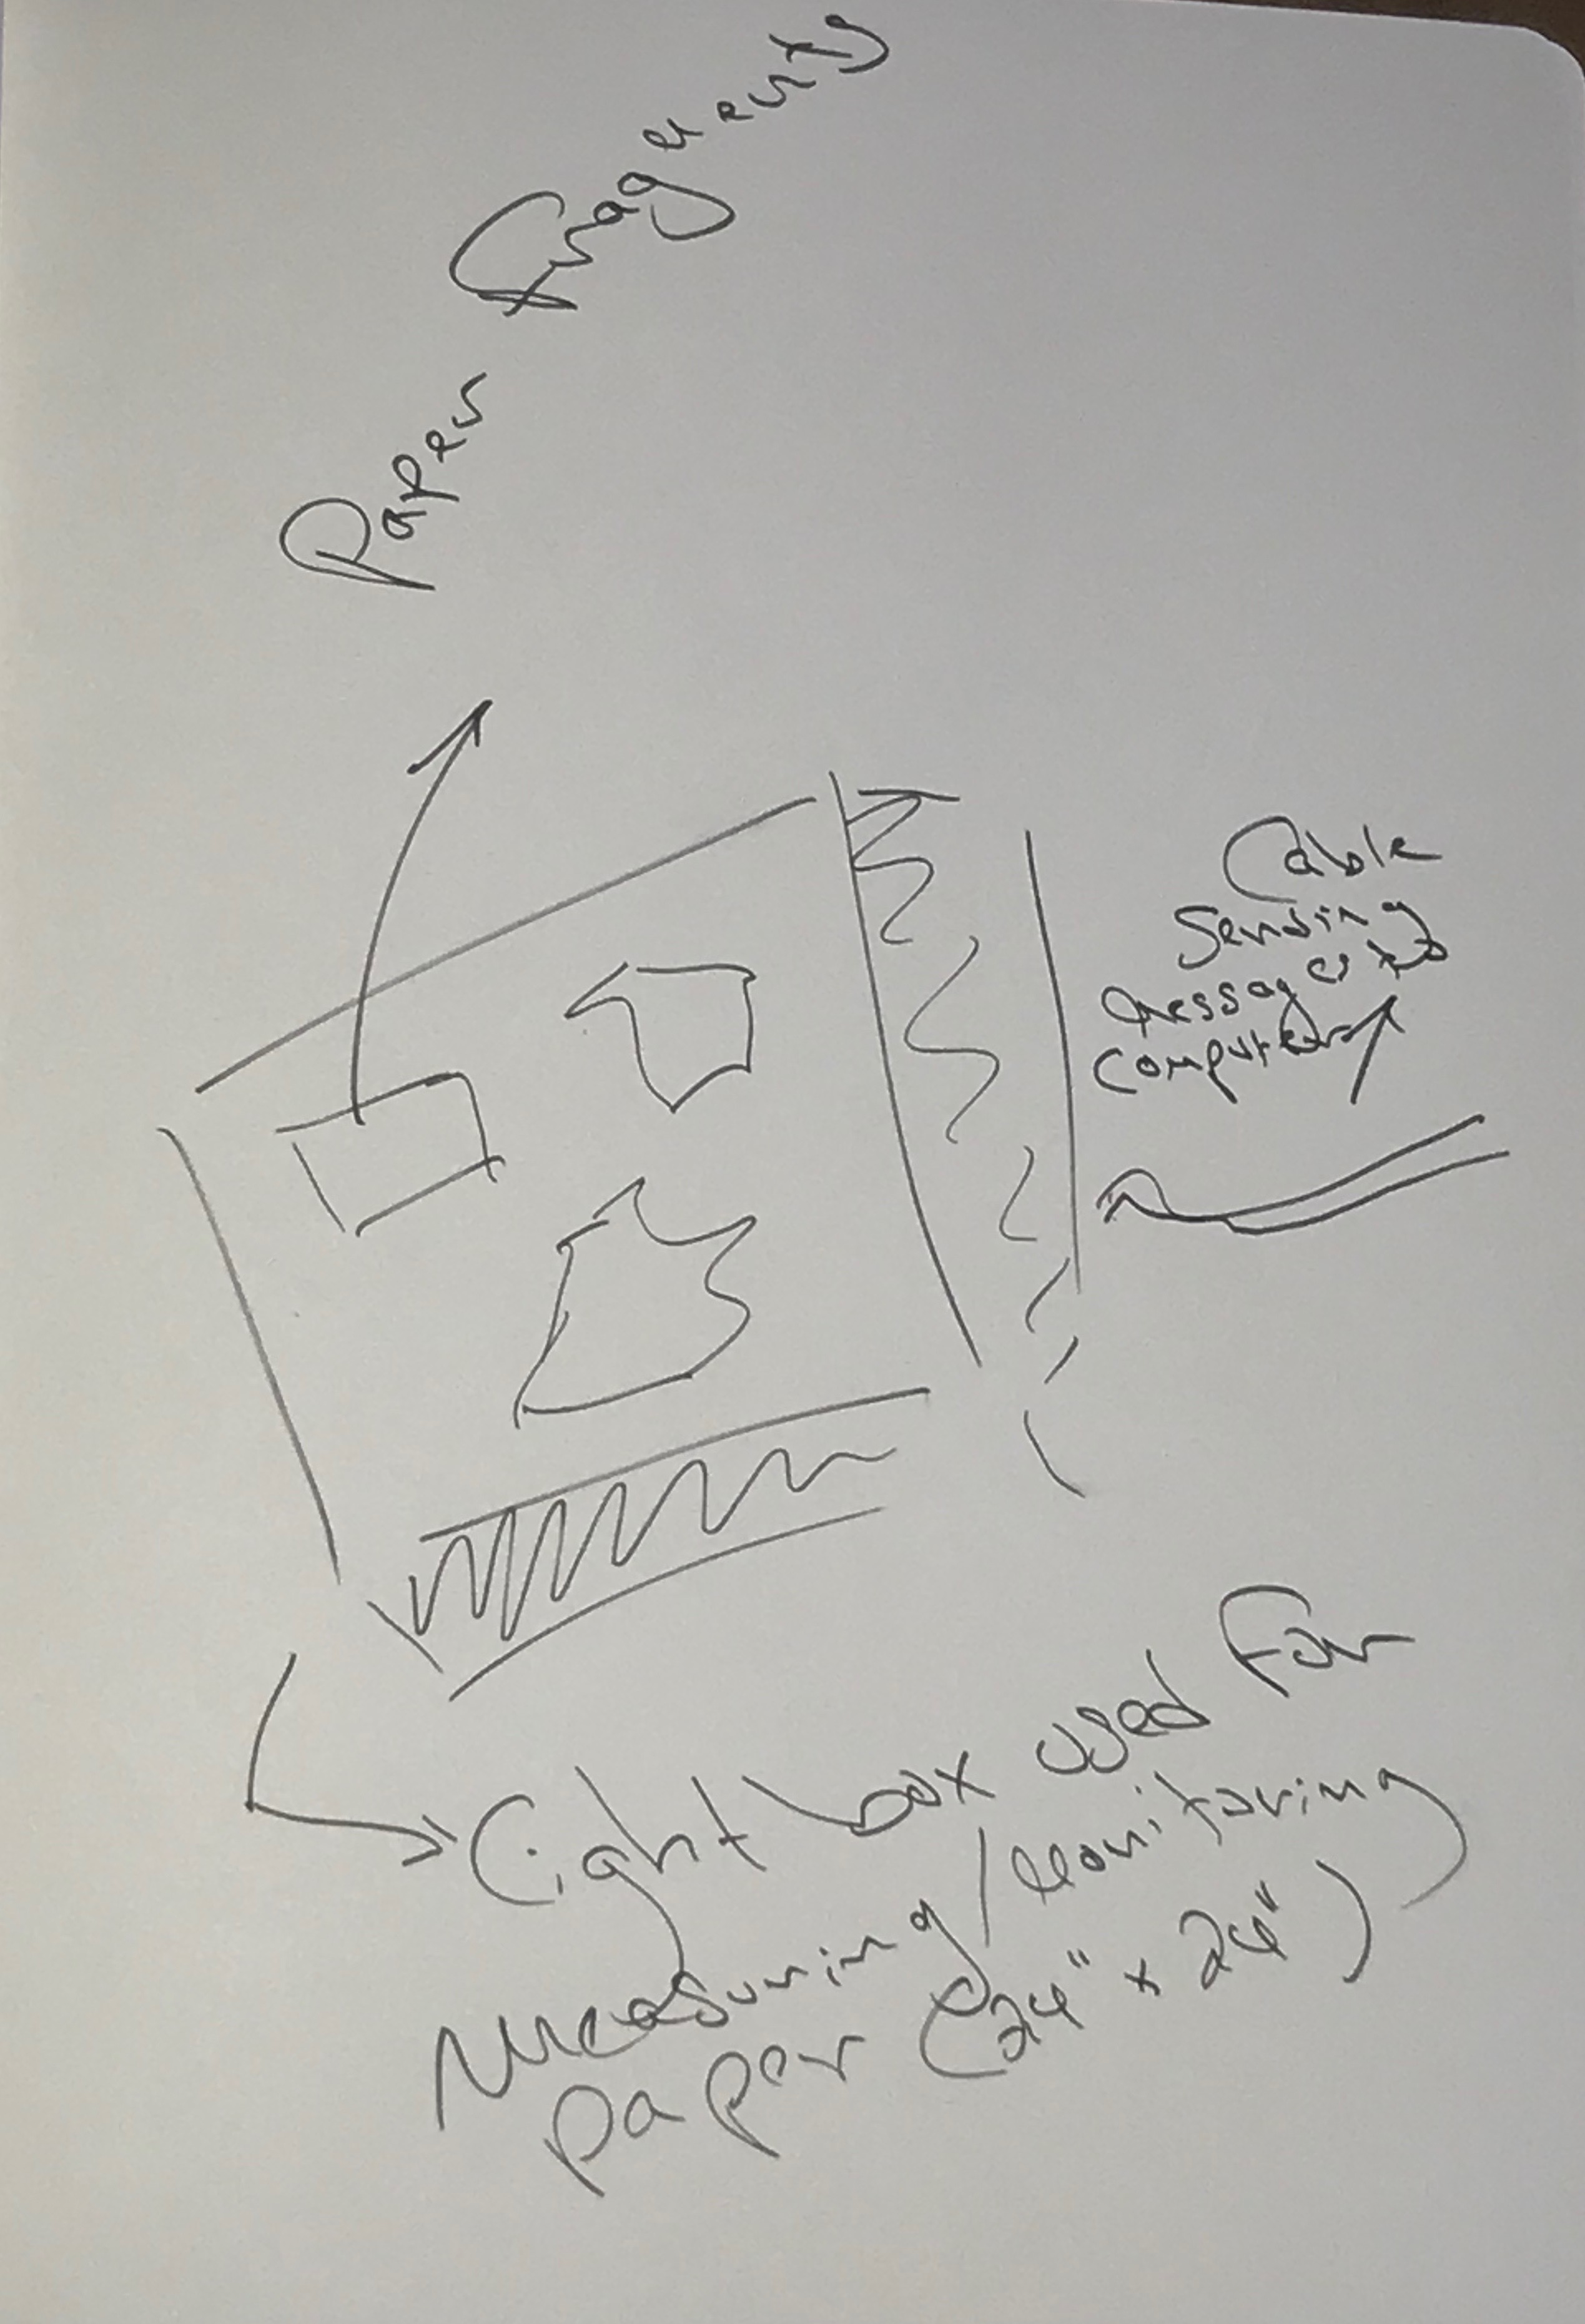 Paper Fragments
Cable
Sending
messages to
computer
Light box used For
Measuring/Monitoring
paper (24" x 24")